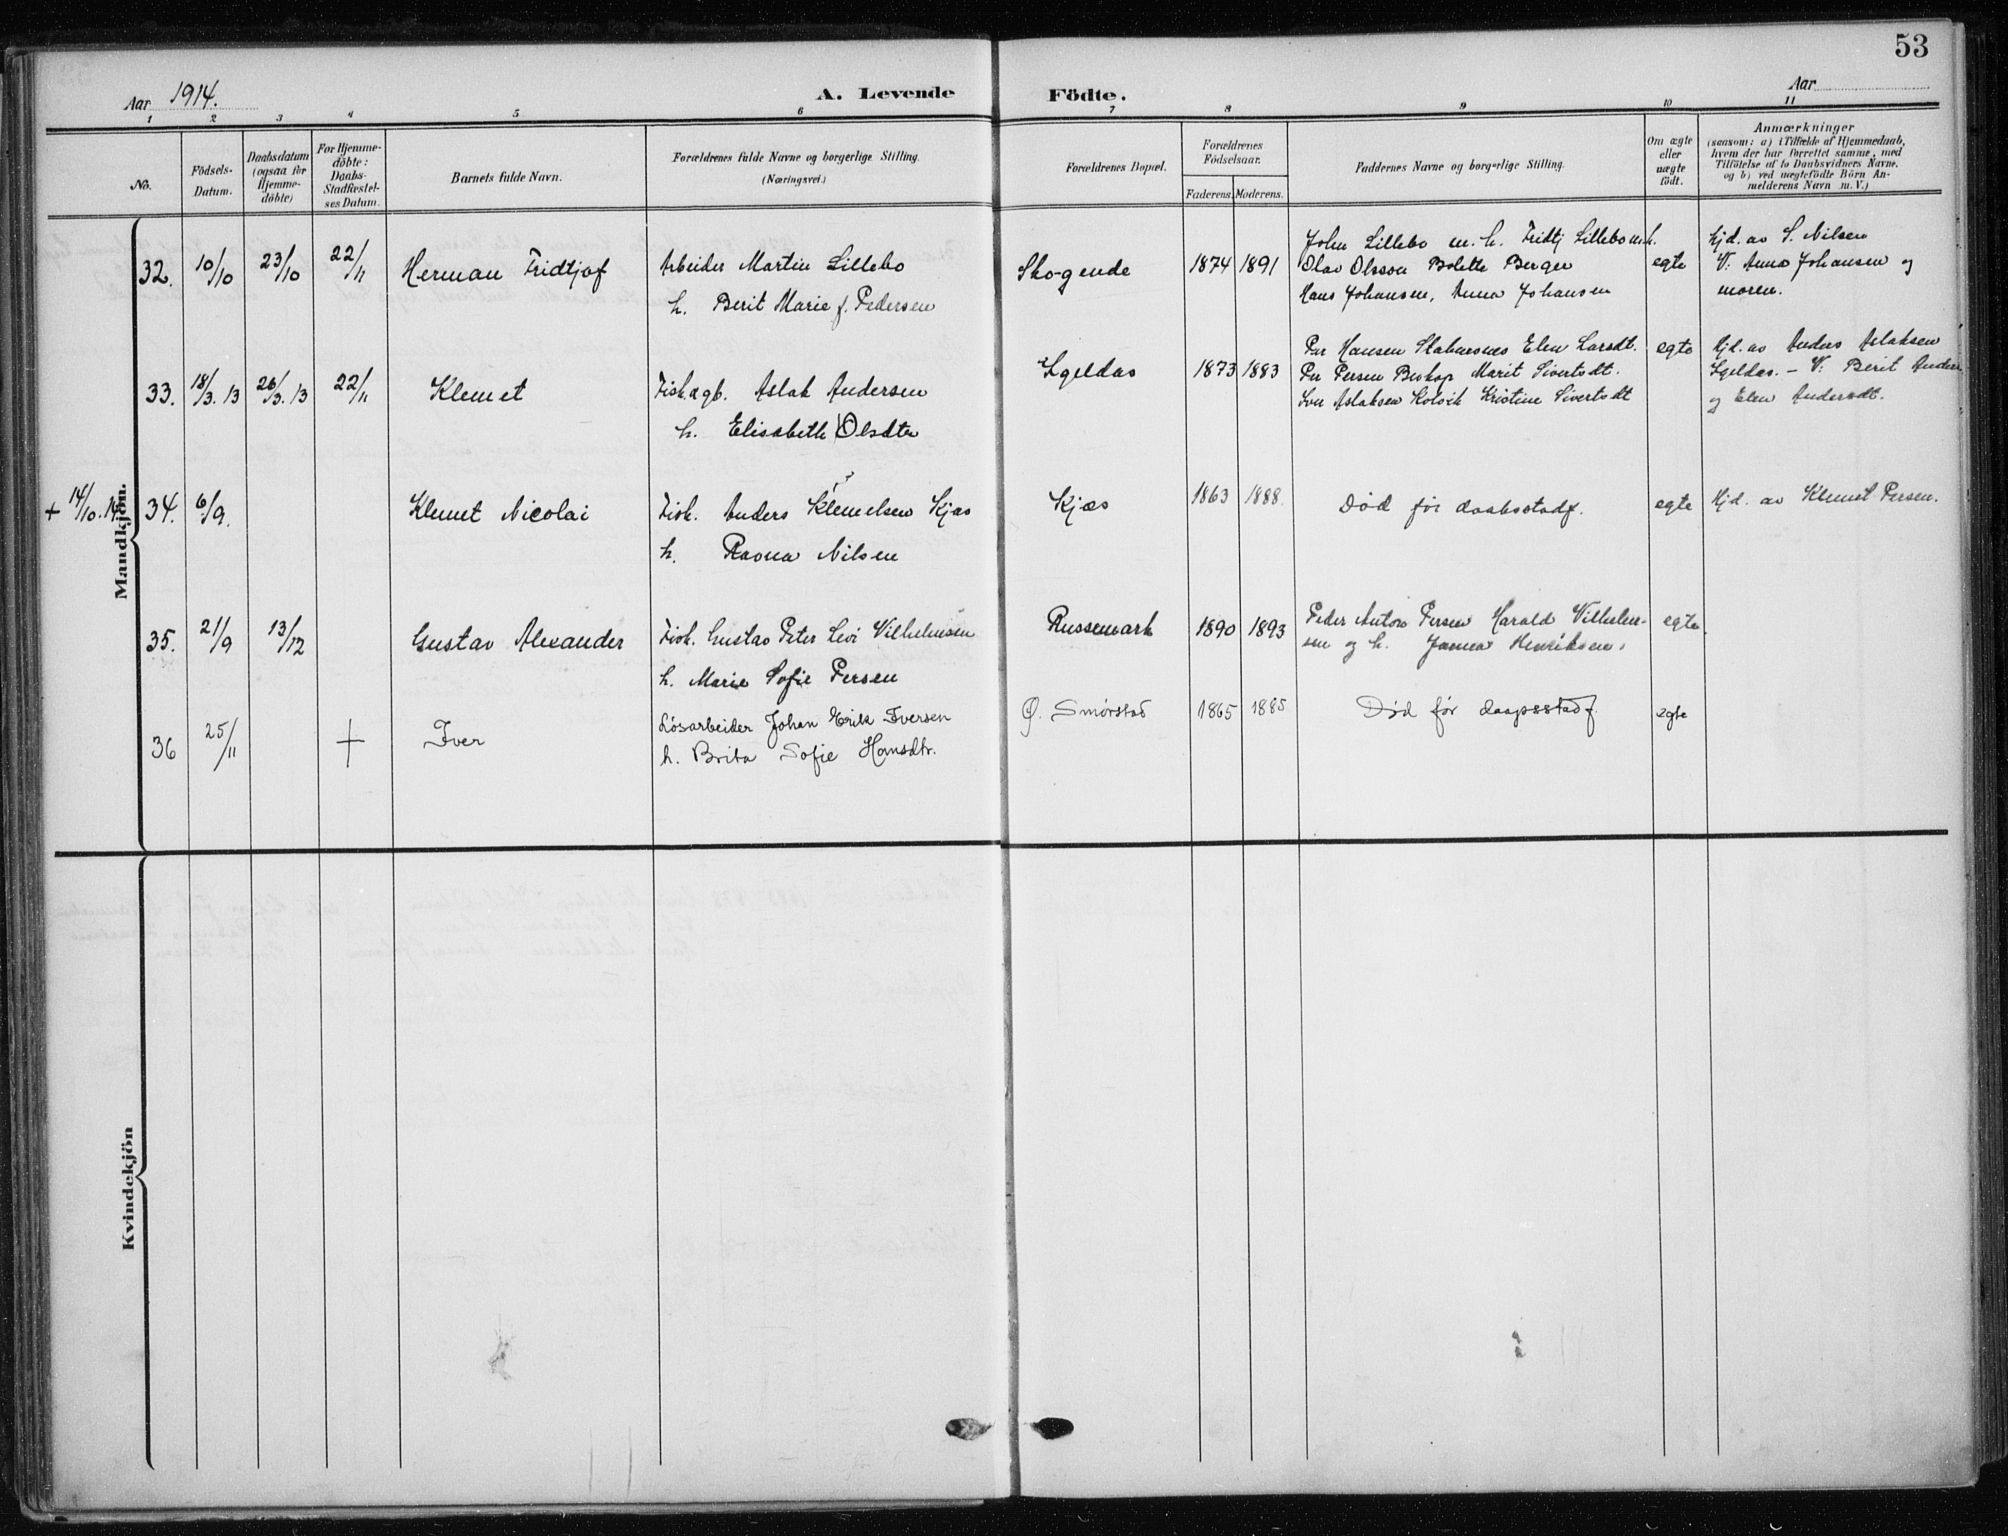 53
Aar 1914.
A. Levende Födte.
Aar
1 2 3 4 5 6 7 8 9 10 11
No.
Födsels-
Datum.
Daabsdatum
(ogsaa for
Hjemme-
döbte)
For Hjemme-
döbte:
Daabs-
Stadfæstel-
ses Datum.
Barnets fulde Navn.
Forældrenes fulde Navne og borgerlige Stilling.
(Næringsvei.)
Forældrenes Bopæl.
Forældrenes
Födselsaar.
Faderens. Moderens.
Faddernes Navne og borgerlige Stilling.
Om ægte
eller
uægte
födt.
Anmærkninger
(saasom: a) i Tilfælde af Hjemmedaab,
hvem der har forrettet samme, med
Tilföielse af to Daabsvidners Navne.
og b) ved uægtefödte Börn An-
melderens Navn m. V.)
Mandkjön.
32. 10/10 23/10 22/11 Herman Fridtjof
Arbeider Martin Lillebo
h. Berit Marie f. Pedersen
Skogende 1874 1891
John Lillebo m. h. Fridtj Lillebo m. h.
Olav Olsson Bolette Berger
Hans Johansen, Anna Johansen
egte
Hjd. av S. Nilsen
V. Anna Johansen og
moren.
33. 18/3. 13 26/3. 13 22/11 Klemet
Fisk. & gb. Aslak Andersen
h. Elisabeth Olsdtr
Igeldas 1873 1883
Per Hansen Stabursnes Elen Larsdt.
Per Persen Biskop Marit Sivertsdt.
Iver Aslaksen Kolvik Kristine Sivertsdt
egte
Hjd. av Anders Aslaksen
Igeldas. - V. Berit Anders.
og Elen Andersdt.
+ 14/10. 14 34. 6/9. Klemet Nicolai
Fisk. Anders Klemetsen Kjæs
h. Ravna Nilsen
Kjæs 1863 1888.
Død før daabsstadf.
egte
Hjd. av Klemet Persen.
35. 21/9 13/12 Gustav Alexander
Fisk. Gustav Peter Levi Vilhelmsen
h. Marie Sofie Persen
Russemark 1890 1893
Peder Anton Persen Harald Vilhelm-
sen og h. Janna Henriksen.
egte
36 25/11 + Iver
Løsarbeider Johan Erik Iversen
h. Brita Sofie Hansdtr.
Ø. Smørstad 1865 1885
Død før daapsstadf.
egte
Kvindekjön